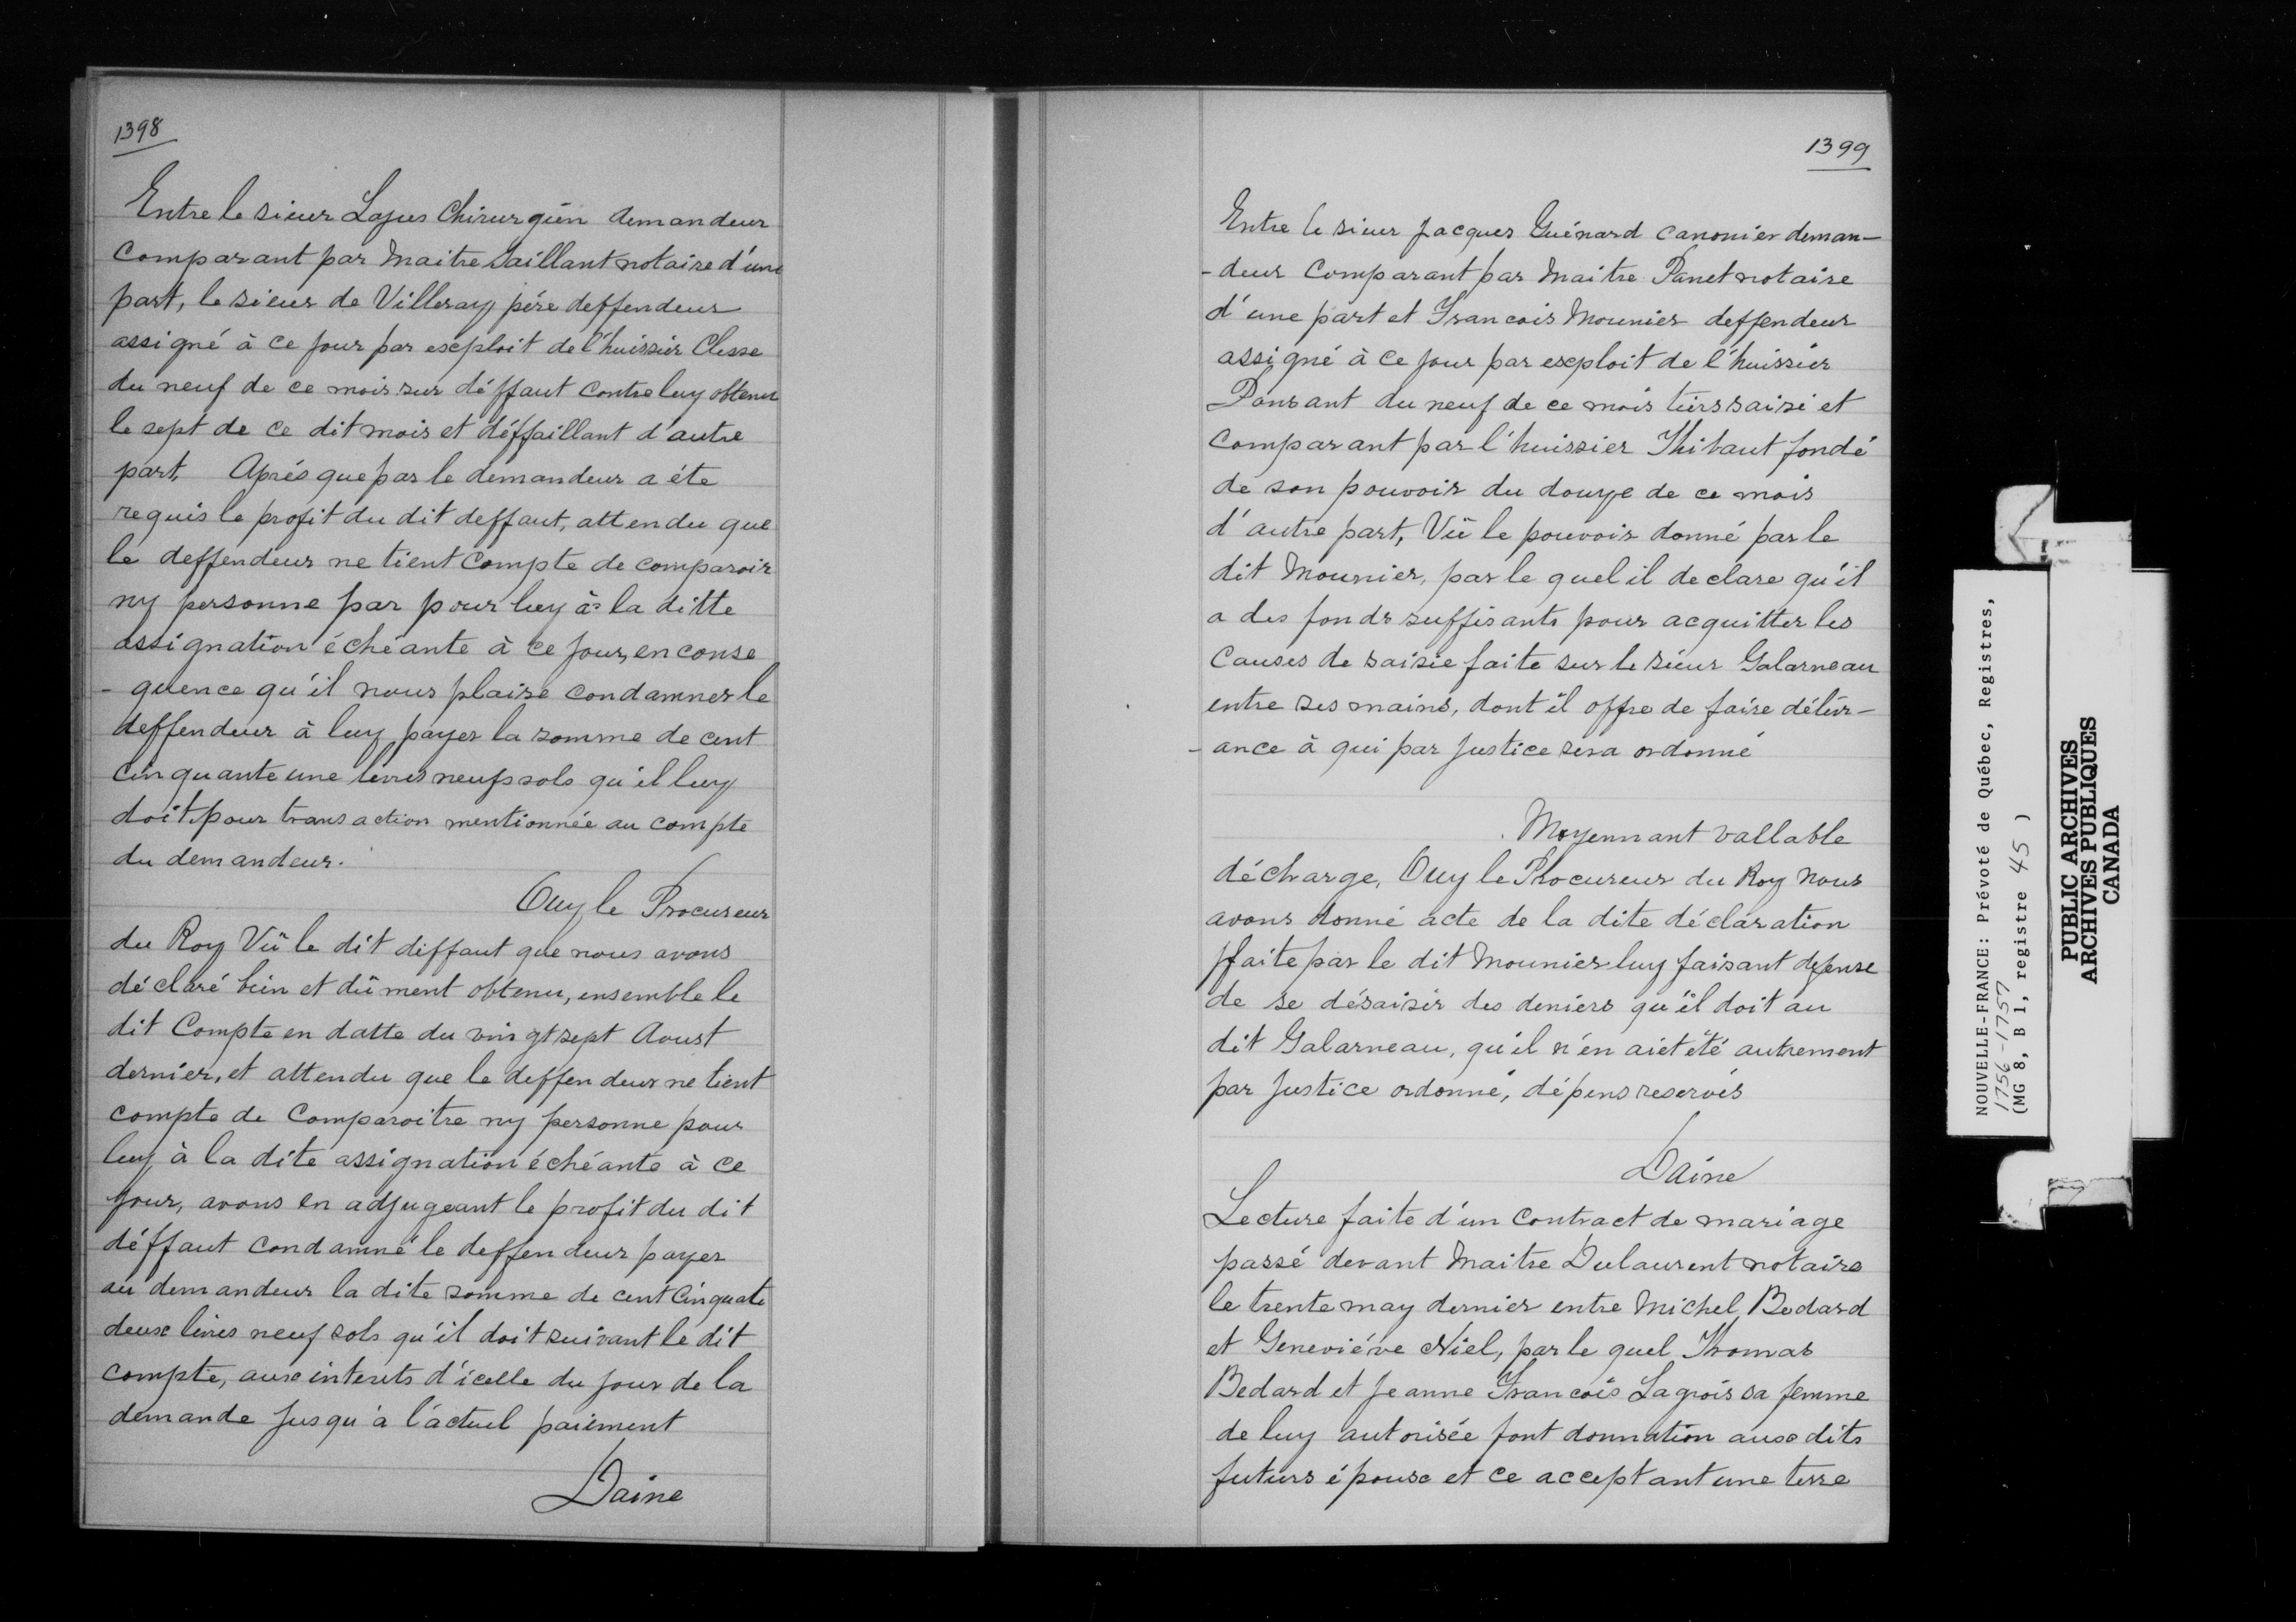 1398
Entre le sieur Lajus Chirurgien demandeur
Comparant par Maitre Saillant notaire d'une
part, le sieur de Villeray pére deffendeur
assigné à ce jour par exploit de l'huissier Clesse
du neuf de ce mois sur déffaut contre luy obtenu
le sept de ce dit mois et déffaillant d'autre
part, Aprés que par le demandeur a éte
requis le profit du dit deffaut, attendu que
le deffendeur ne tient Compte de comparoir
ny personne par pour luy à la ditte
assignation échéante à ce jour, en conse
- quence qu'il nous plaise condamner le
deffendeur à luy payer la somme de cent
cinquante une livres neuf sols qu'il luy
doit pour transaction mentionnée au compte
du demandeur.
Ouy le Procureur
du Roy Vû le dit diffaut que nous avons
déclaré bien et dûment obtenu, ensemble le
dit Compte en datte du vingt sept Aoust
dernier, et attendu que le deffendeur ne tient
compte de Comparoitre ny personne pour
luy à la dite assignation échéante à ce
jour, avons en adjugeant le profit du dit
déffaut condamné le deffendeur payer
au demandeur la dite somme de cent Cinquate
deux livres neuf sols qu'il doit suivant le dit
compte, aux interets d'icelle du jour de la
demande jusqu'à l'actuel paiement
Daine
1399
Entre le sieur Jacques Guénard canonier deman-
- deur Comparant par Maitre Panet notaire
d'une part et Francois Mounier deffendeur
assigné à ce jour par exploit de l'huissier
Ponsant du neuf de ce mois tiers saisi et
Comparant par l'huissier Thibaut fondé
de son pouvoir du douze de ce mois
d'autre part, Vû le pouvoir donné par le
dit Mounier, par le quel il declare qu'il
a des fonds suffisants pour acquitter les
Causes de saisie faite sur le sieur Galarneau
entre ses mains, dont il offre de faire délivr-
- ance à qui par Justice sera ordonné
Moyennant vallable
décharge, Ouy le Procureur du Roy Nous
avons donné acte de la dite déclaration
faite par le dit Mounier luy faisant defense
de se désaisir des deniers qu'il doit au
dit Galarneau, qu'il n'en aiet été autrement
par Justice ordonné, dépens reservés
Daine
Lecture faite d'un Contract de mariage
passé devant Maitre Dulaurent notaire
le trente may dernier entre Michel Bedard
et Geneviéve Niel, par le quel Thomas
Bedard et Jeanne Francois Lagrois sa femme
de luy autorisée font donnation aux dits
futurs époux et ce acceptant une terre
NOUVELLE-FRANCE: Prévoté de Québec, Registres,
1756-1757
(MG 8, B 1, registre 45 )
PUBLIC ARCHIVES
ARCHIVES PUBLIQUES
CANADA